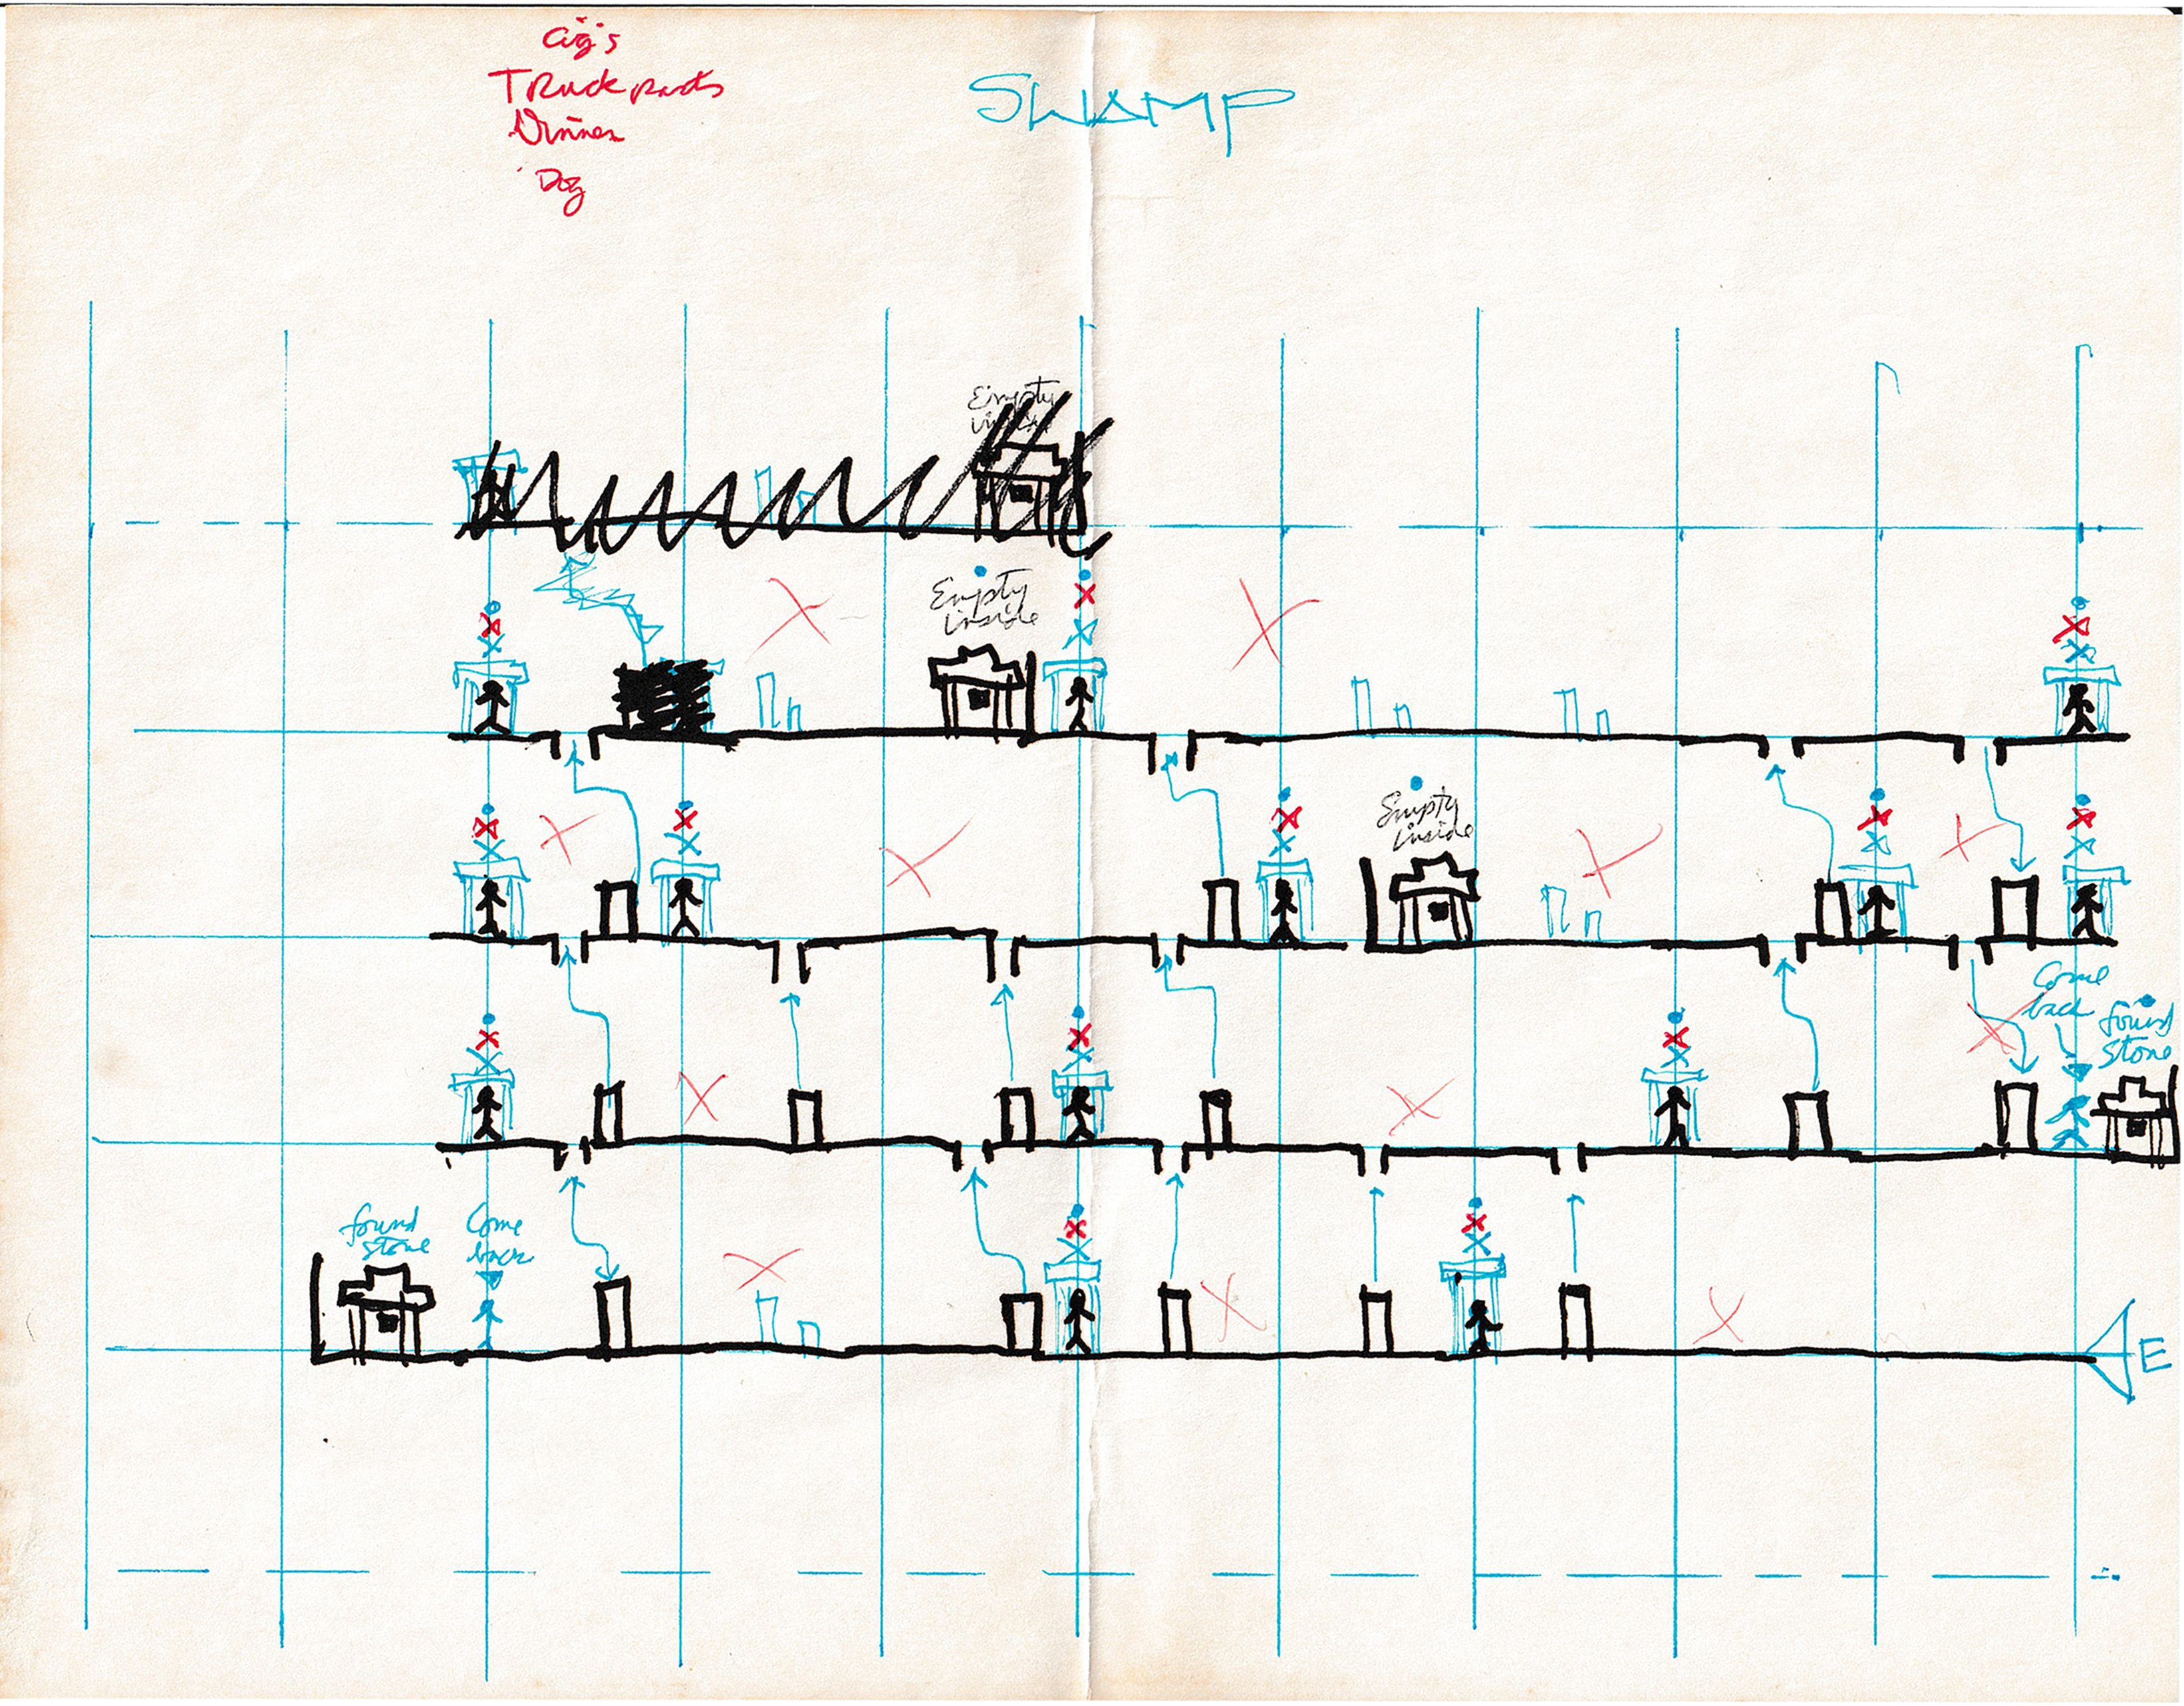 Cig's
Truck parts
Dinner
Dog
SWAMP
Empty
Empty
inside
Empty
inside
Come
back
found
stone
found
stone
Come
back
E